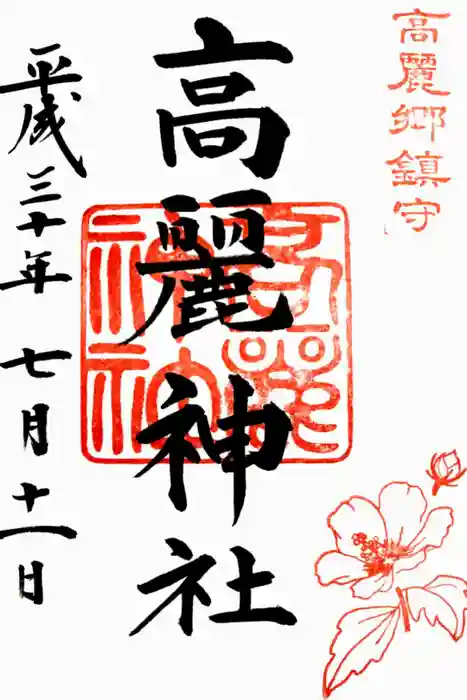 高麗郷鎮守
高麗神社
平成三十年七月十一日
高麗
神社